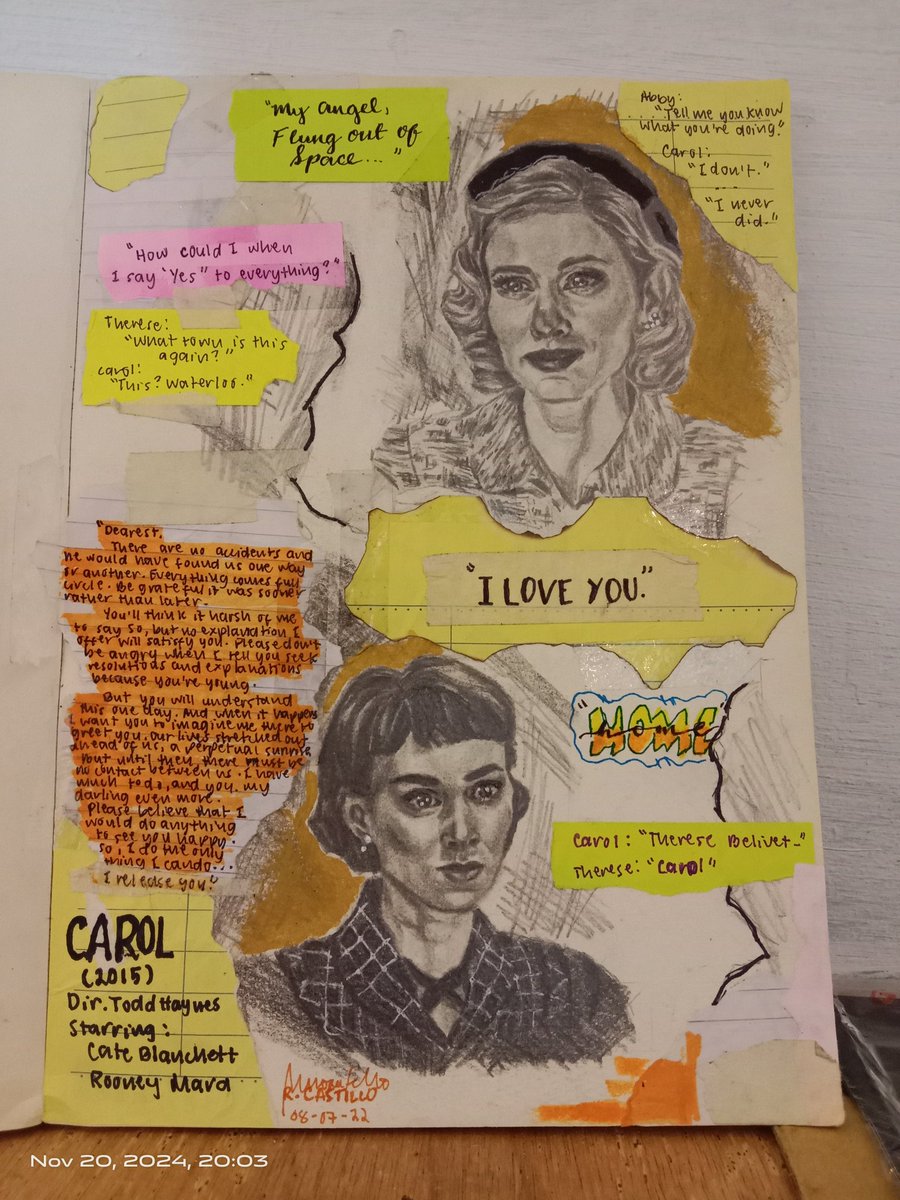 "My angel,
Flung out of
Space..."
Abby:
..."Tell me you know
what you're doing."
Carol:
"I don't."
"I never
did."
"How could I when
I say 'Yes" to everything?"
Therese:
"What town is this
again?"
Carol:
"This? Waterloo."
"Dearest.
There are no accidents and
he would have found us one way
or another. Everything comes full
circle. Be grateful it was sooner
rather than later.
You'll think it harsh of me
to say so, but no explanation I
offer will satisfy you. Please don't
be angry when I tell you seek
resolutions and explanations
because you're young.
But you will understand
this one day. And when it happens
I want you to imagine me there to
greet you, our lives stretched out
ahead of us, a perpetual sunrise
But until then, there must be
no contact between us. I have
much to do, and you, my
darling even more.
Please believe that I
would do anything
to see you happy.
So, I do the only
thing I can do...
I release you."
"I LOVE YOU."
"HOME"
Carol: "Therese Belivet-"
Therese: "Carol"
CAROL
(2015)
Dir. Todd Haynes
Starring:
Cate Blanchett
Rooney Mara
R. CASTILLO
08-07-22
Nov 20, 2024, 20:03